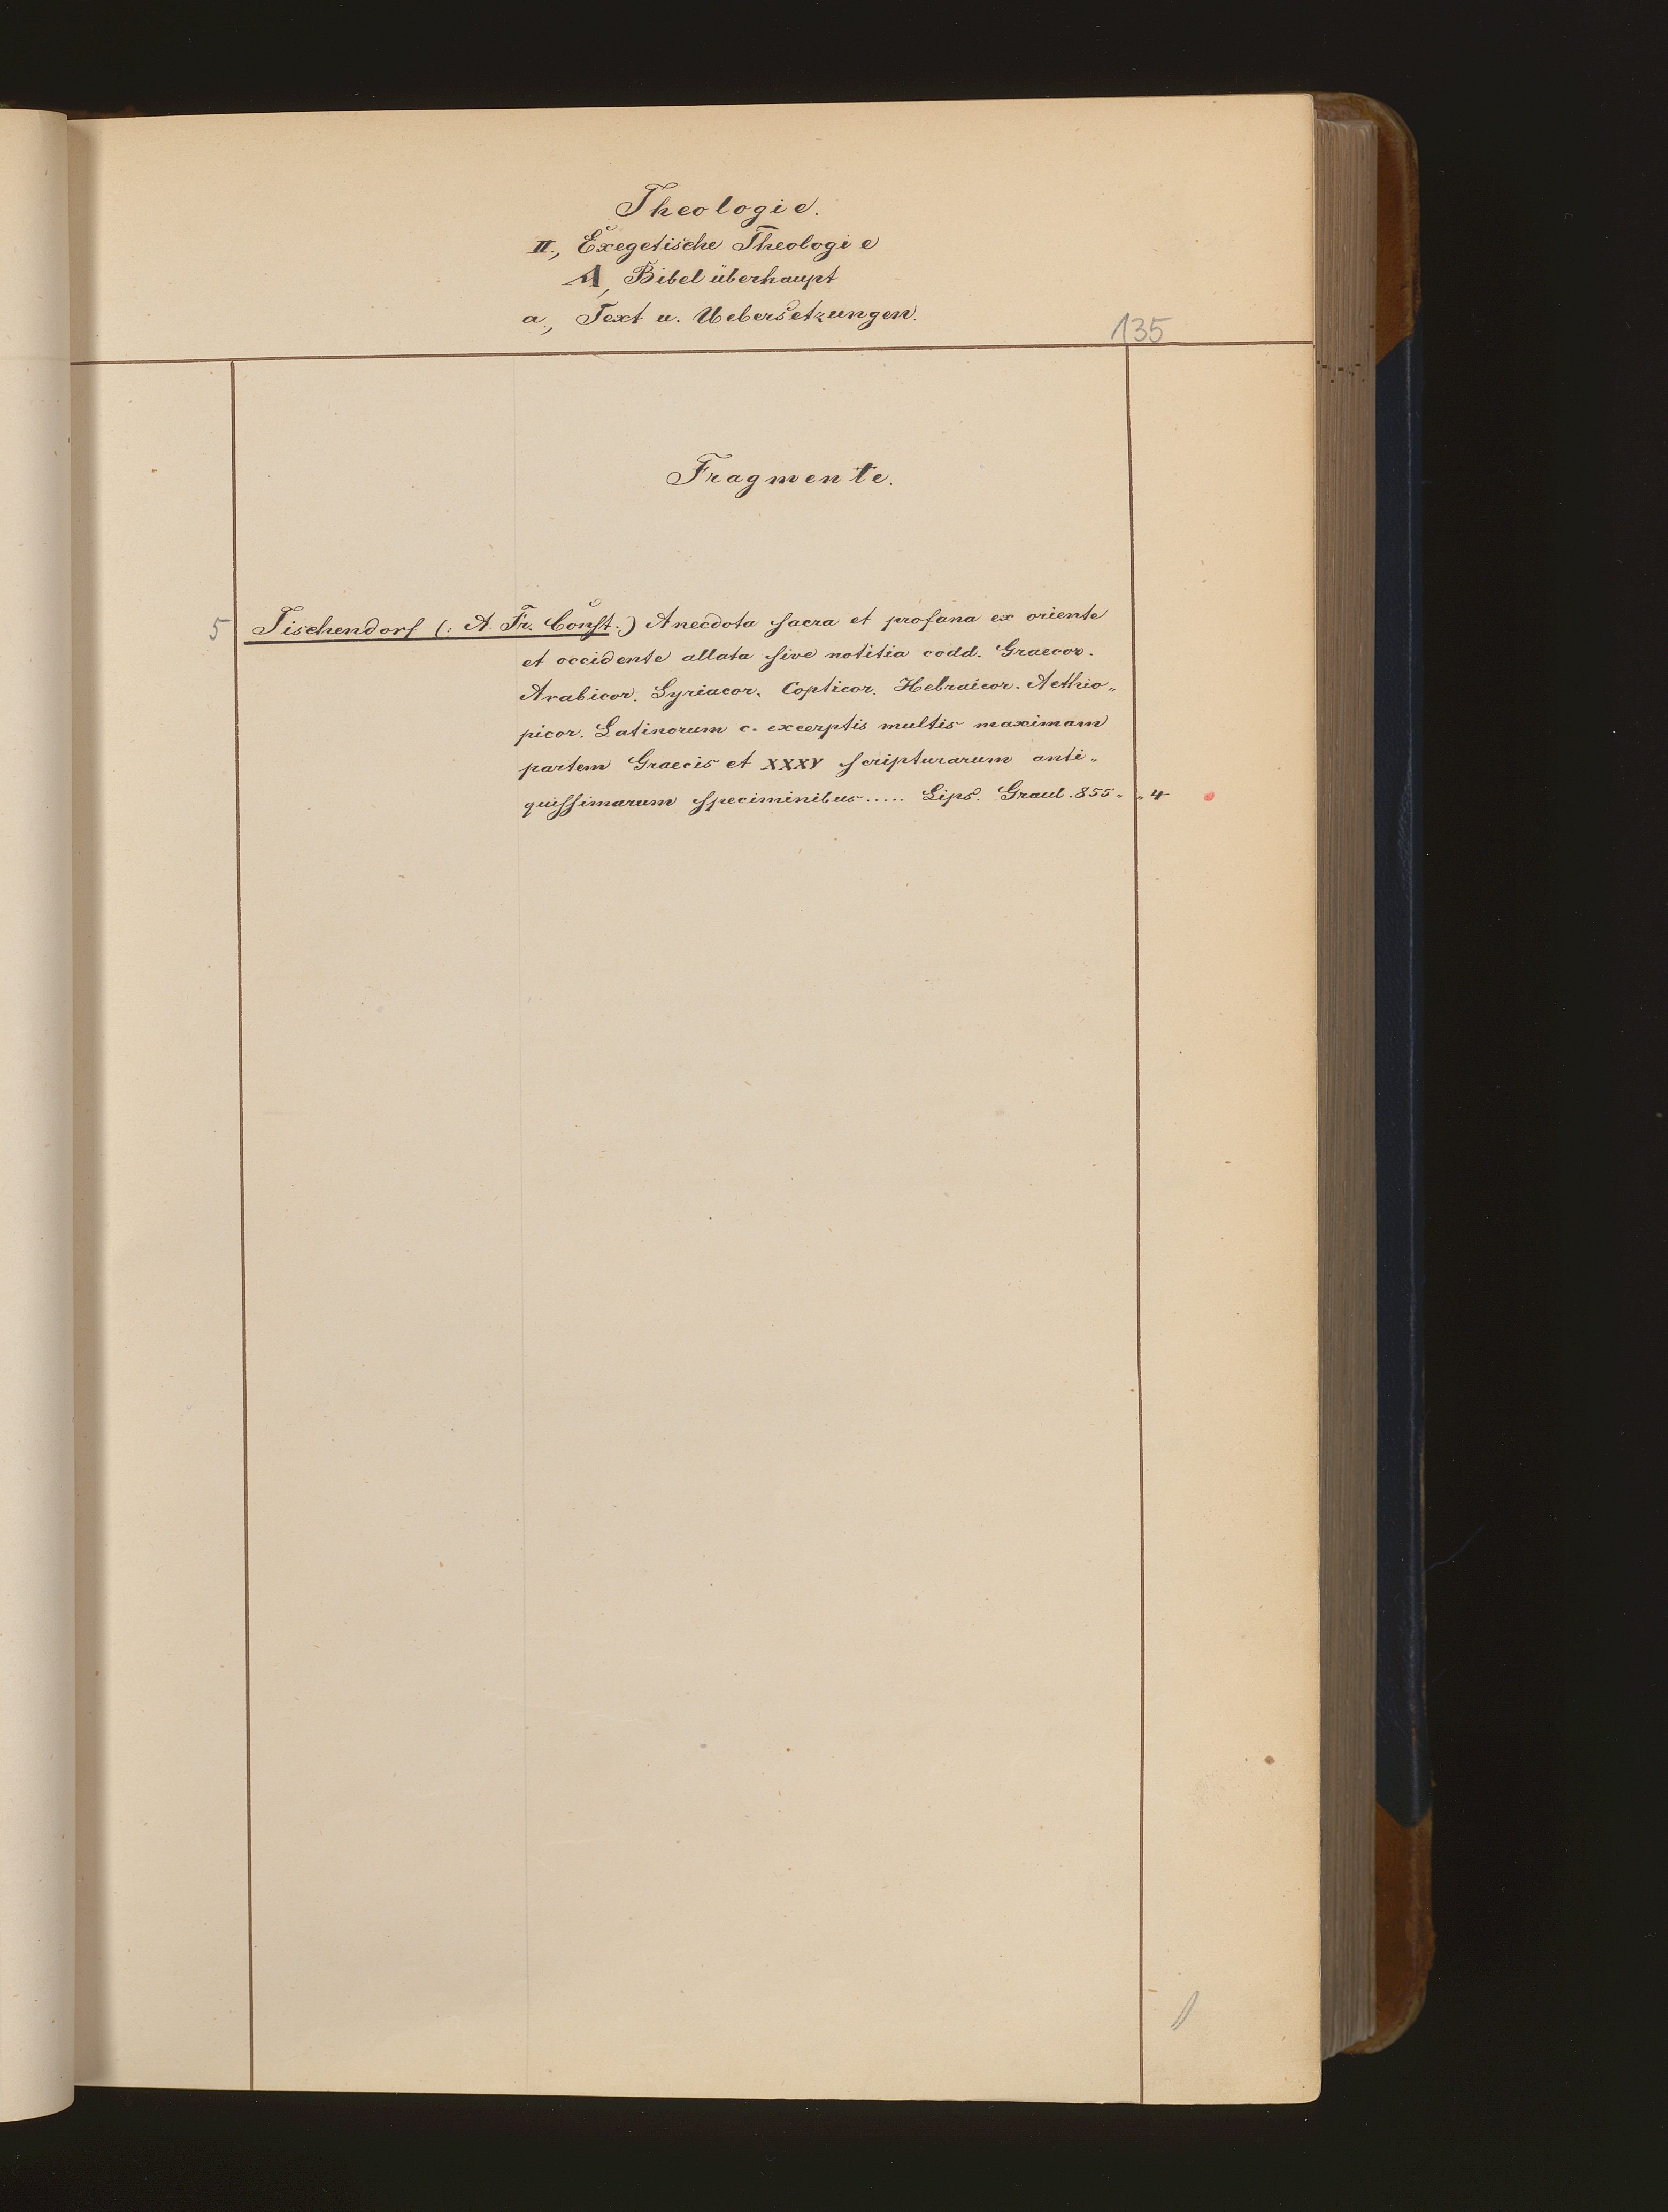 Theologie.
II., Exegetische Theologie
A, Bibel überhaupt
a., Text u. Uebersetzungen.
135
Fragmente.
5 Tischendorf (: A. Fr. Const :) Anecdota sacra et profana ex oriente
et occidente allata sive notitia codd. Graecor.
Arabicor. Syriacor. Copticor. Hebraicor. Aethio„
picor. Latinorum c. excerptis multis maximam
partem Graecis et XXXV scripturarum anti„
quissimarum speciminibus..... Lips. Graul. 855„ „ 4